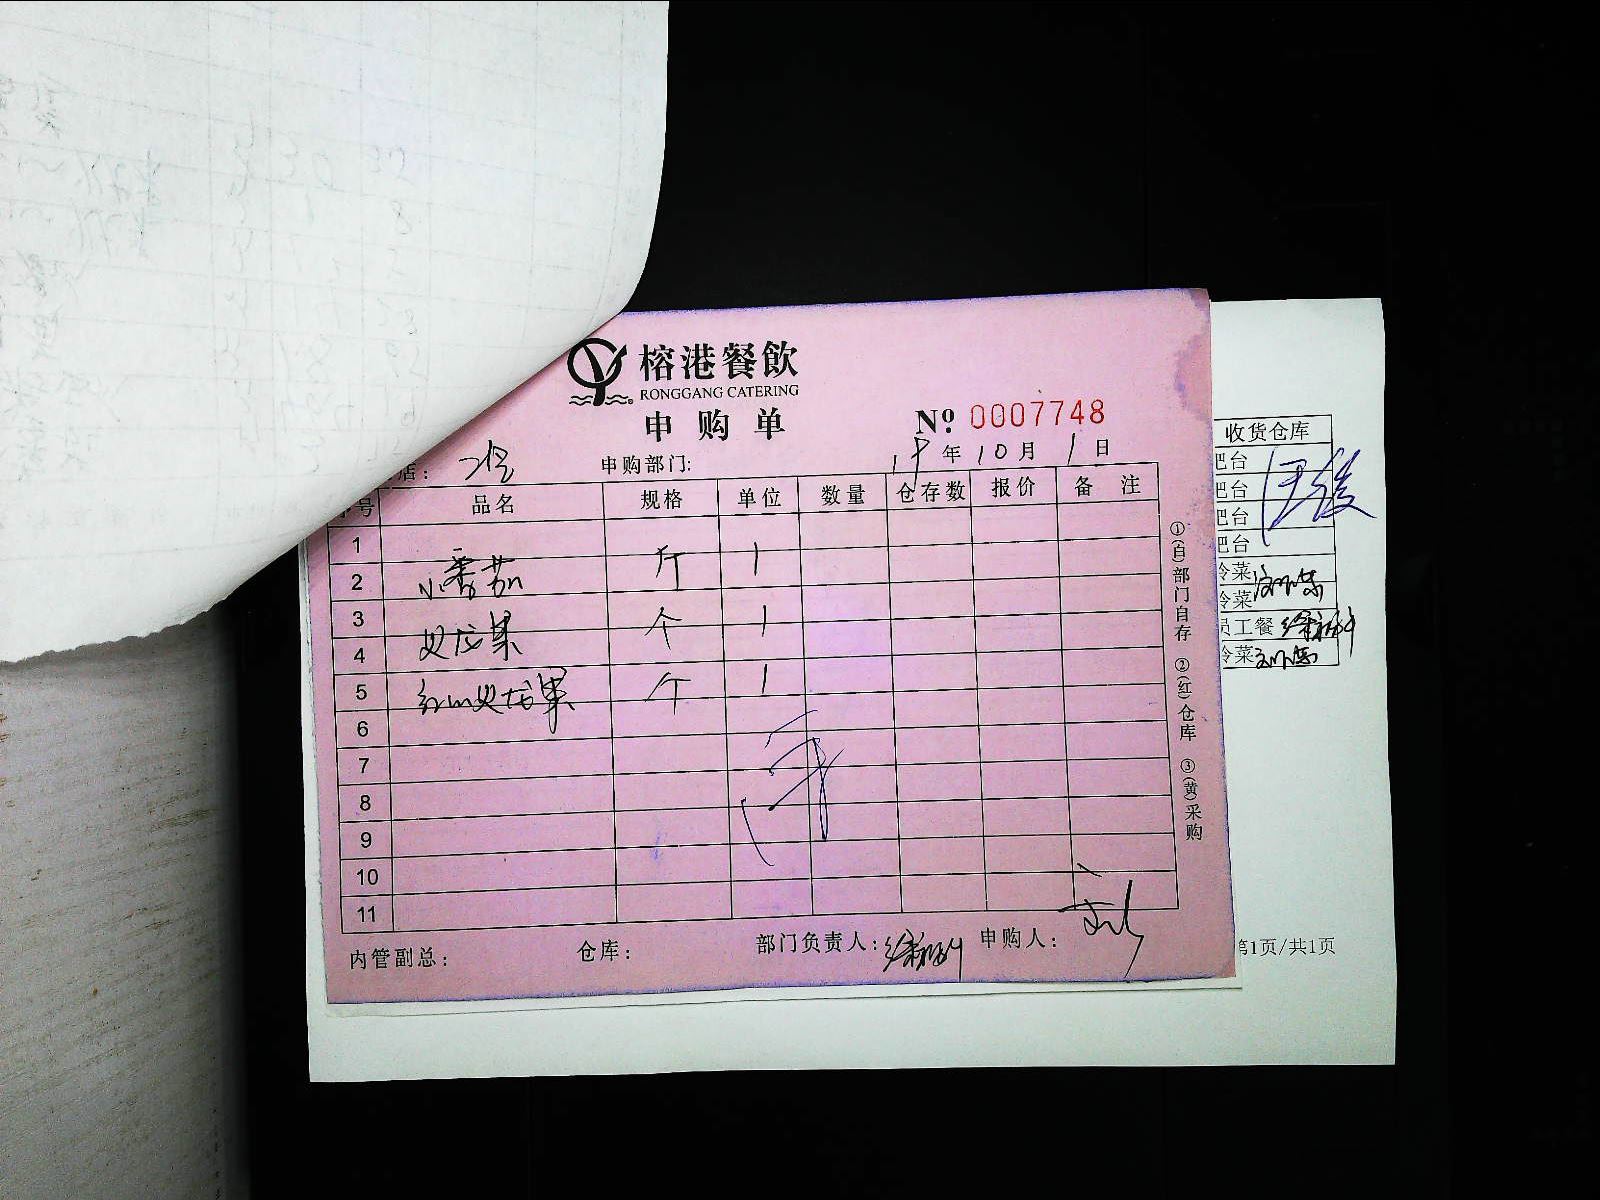 榕港餐飲
RONGGANG CATERING
申购单
№ 0007748
店:
申购部门:
19年10月1日
号 品名 规格 单位 数量 仓存数 报价 备注
1
2 小番茄 斤 1
3
4 火龙果 个 1
5 红心火龙果 个 1
6
7
8
9
10
11
内管副总: 仓库: 部门负责人: 申购人: 刘
①(白)部门自存 ②(红)仓库 ③(黄)采购
收货仓库
吧台
吧台
吧台
吧台
冷菜
冷菜
员工餐
冷菜
第1页/共1页